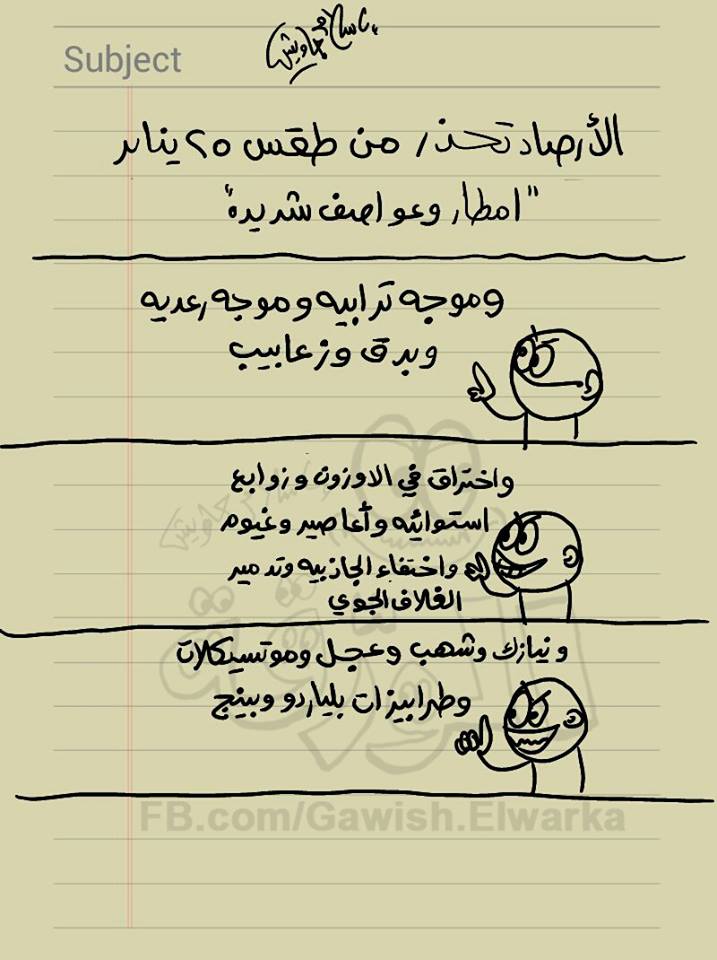 إسلام جاويش
Subject
الأرصاد تحذر من طقس ٢٥ يناير
"امطار وعواصف شديدة"
وموجه ترابيه وموجه رعديه
وبرق وزعابيب
واختراق في الاوزون وزوابع
استوائيه وأعاصير وغيوم
واختفاء الجاذبيه وتدمير
الغلاف الجوي
ونيازك وشهب وعجل وموتسيكلات
وطرابيزات بلياردو وبينج
الورقة
FB.com/Gawish.Elwarka